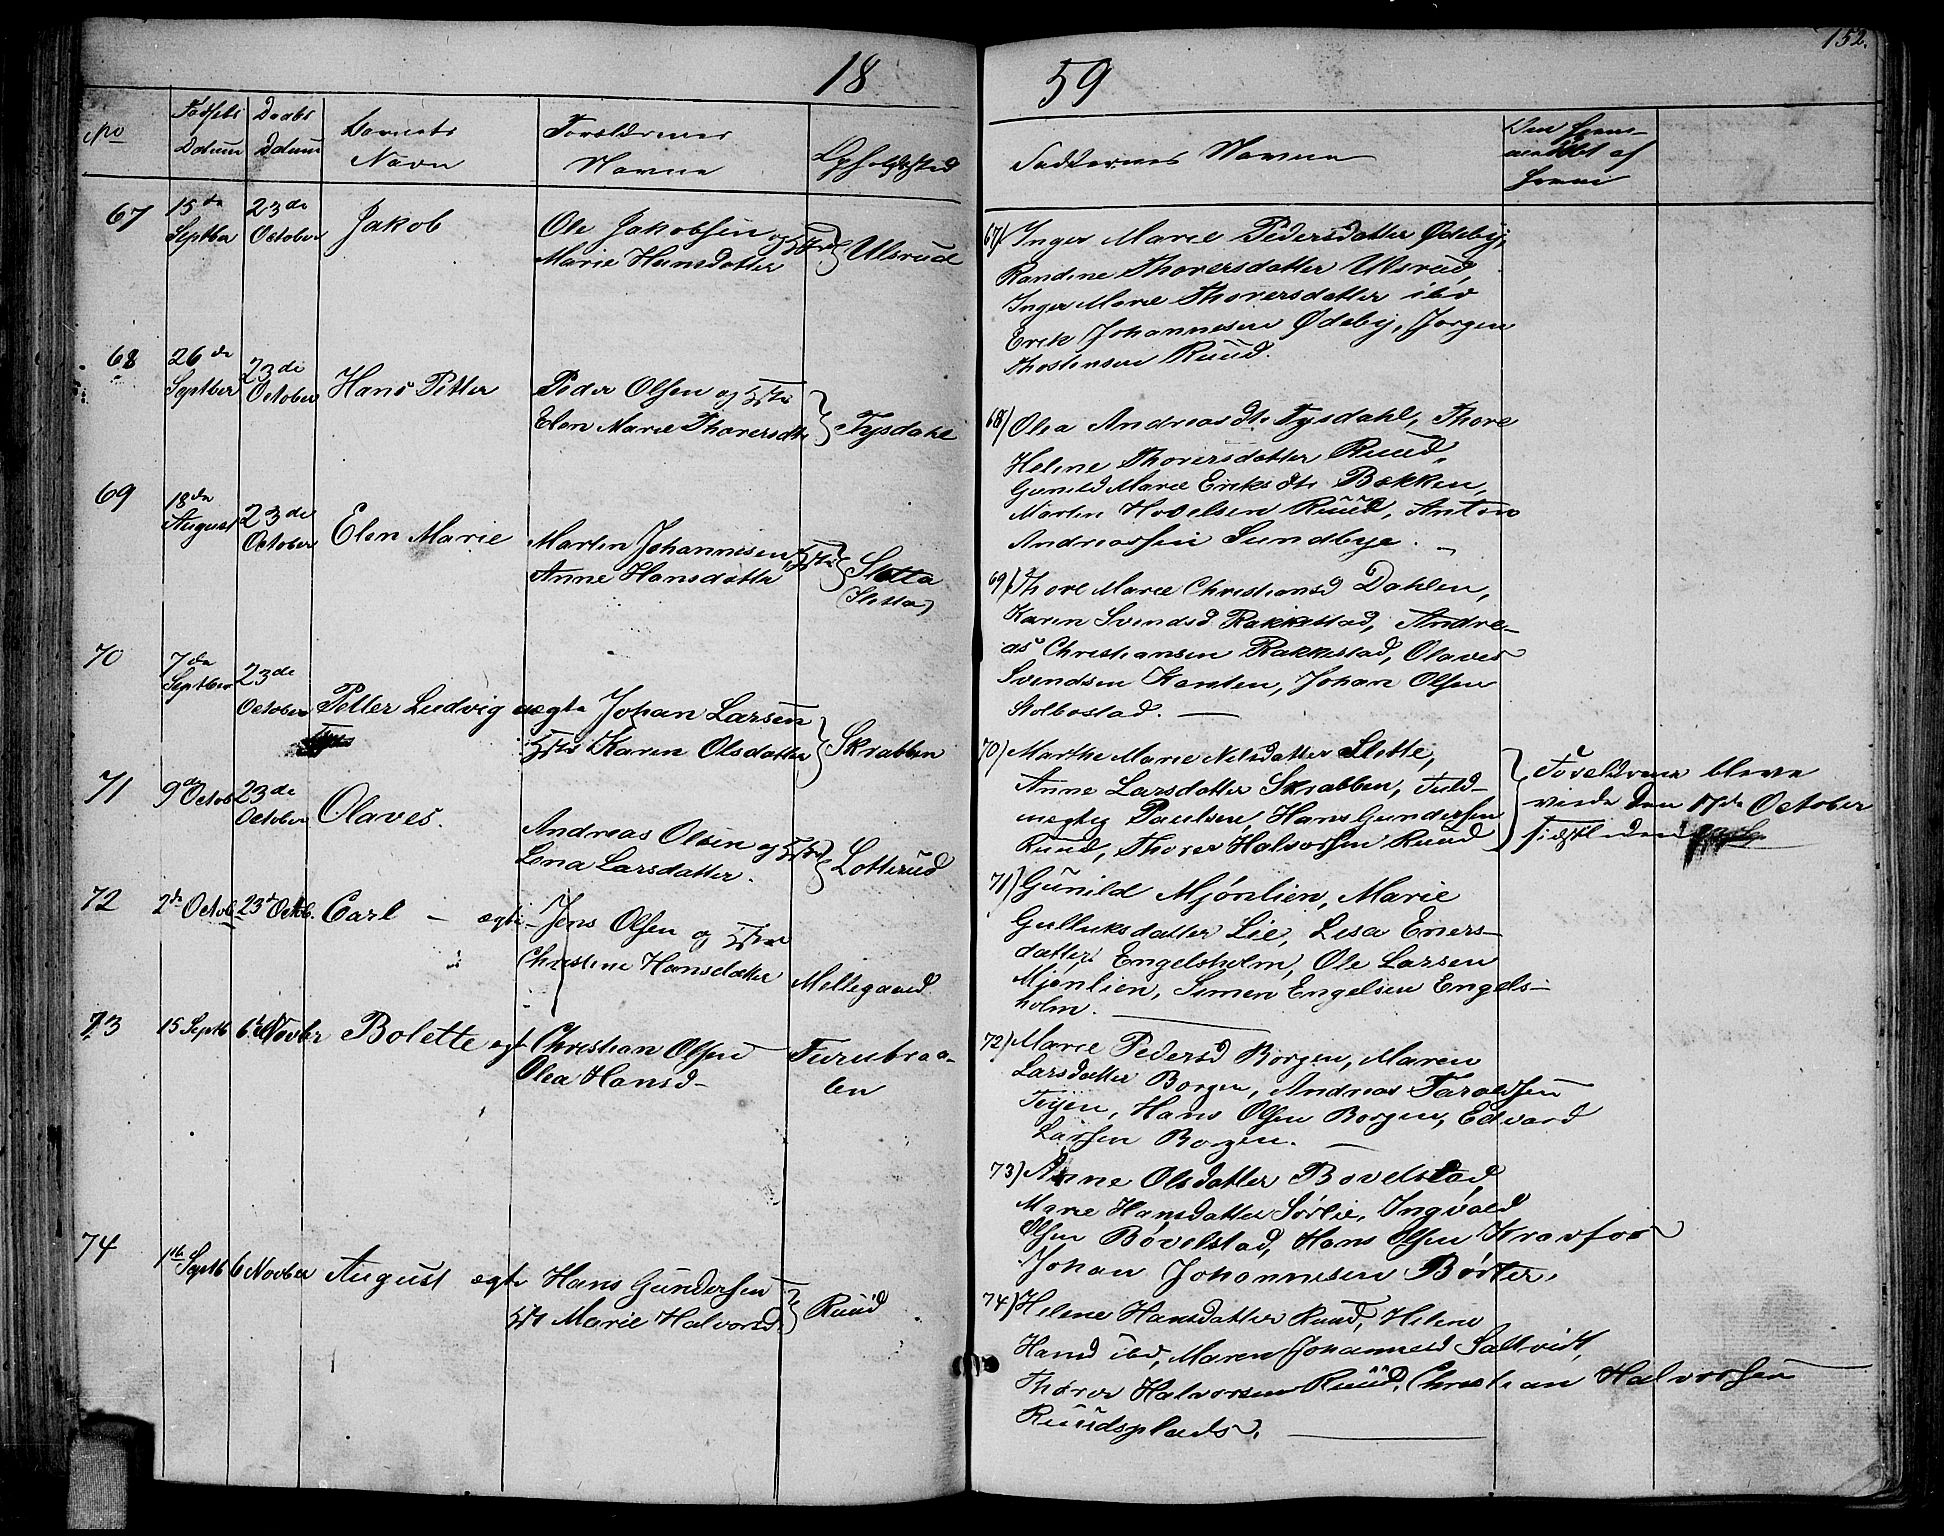 18 59
152.
No
Fødsels Datum
Daabs Datum
Barnets Navn
Forældrenes Navne
Opholdssted
Faddernes Navne
67
15de Septber
23de October
Jakob
Ole Jakobsen og Hstr
Marie Hansdatter
Ulsrud
68
26de Septber
23de October
Hans Petter
Peder Olsen og Hstr
Elen Marie Thorersdtr
Tysdahl
69
18de August
23de October
Elen Marie
Martin Johannesen Hstr
Anne Hansdatter
Sletta
(Sletta)
70
7de Septber
23de October
Petter Ludvig uægte
Johan Larsen
Hstr Karen Olsdatter
Skrabben
71
9de Octob
23de October
Olaves.
Andreas Olsen og Hstr
Lena Larsdatter.
Lotterud
72
2de Octob
23de Octob.
Carl – ægte
Jens Olsen og Hstr
Christine Hansdatter
Mellegaard
73
15 Septb
6te Novbr
Bolette egt
Christian Olsen
Olea Hansd
Furubraa-
ten
74
1ste Septb
6 Novber
August ægte
Hans Gundersen
Hst Marie Halvorsd
Ruud
67) Inger Marie Pedersdatter Ødeby,
Randine Thorersdatter Ulsrud,
Inger Marie Thorersdatter ibd
Erik Johannesen Ødeby, Jørgen
Thostensen Ruud.
68) Olea Andreas dtr Tysdahl, Thore
Helene Thorersdatter Ruud,
Gunild Marie Eriks dtr Bækken,
Martin Hovelsen Ruud, Anton
Andreassen Sundbye.
69) Thore Marie Christiansd Dahlen,
Karen Svendsd Rakkestad, Andre-
as Christiansen Rakkestad, Olaves
Svendsen Kanten, Johan Olsen
Stolbostad.
70) Marthe Marie Nelsdatter Slette,
Anne Larsdatter Skrabben, Fuld-
mægtig Paulsen, Hans Gundersen
Ruud, Thorer Halvorsen Ruud
Forældrene bleve
viede den 17de October
sidstleden
71) Gunild Mjønlien, Marie
Gulluksdatter Lie, Lisa Eners-
datter Engelsholm, Ole Larsen
Mjønlien, Simen Engelsen Engels-
holm.
72) Marie Pedersd Borgen, Maren
Larsdatter Borgen, Andreas Taraldsen
Teijen, Hans Olsen Borgen, Edvard
Larsen Borgen.
73) Anne Olsdatter Bøvelstad
Marie Hansdatter Sørlie, Ingvald
Olsen Bøvelstad, Hans Olsen Kravfoss
Johan Johannesen Børter.
74) Helene Hansdatter Ruud, Helene
Hansd ibd, Maren Johannesd Saltvidt,
Thorer Halvorsen Ruud, Christian Halvorsen
Ruudsplads.